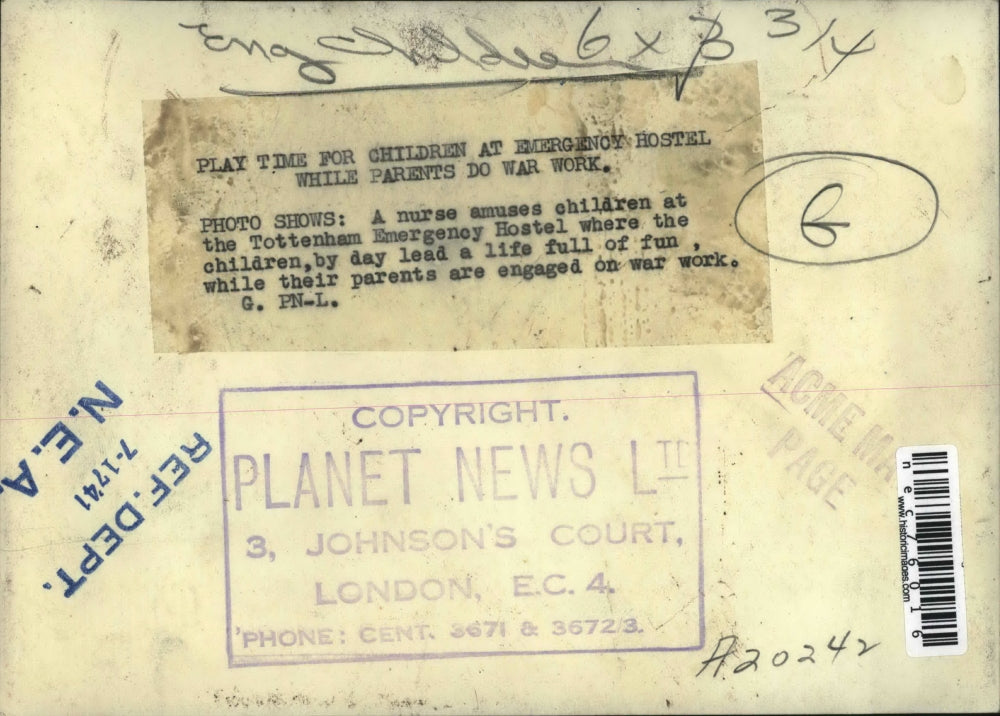 Eng Children 6 x 8 3/4
PLAY TIME FOR CHILDREN AT EMERGENCY HOSTEL
WHILE PARENTS DO WAR WORK.
PHOTO SHOWS: A nurse amuses children at
the Tottenham Emergency Hostel where the
children,by day lead a life full of fun ,
while their parents are engaged on war work.
G. PN-L.
COPYRIGHT.
PLANET NEWS LTD
3, JOHNSON'S COURT,
LONDON, E.C. 4.
'PHONE: CENT. 3671 & 3672/3.
REF. DEPT.
7-17'41
N. E. A.
ACME
PAGE
necy76016
www.historicimages.com
A20242